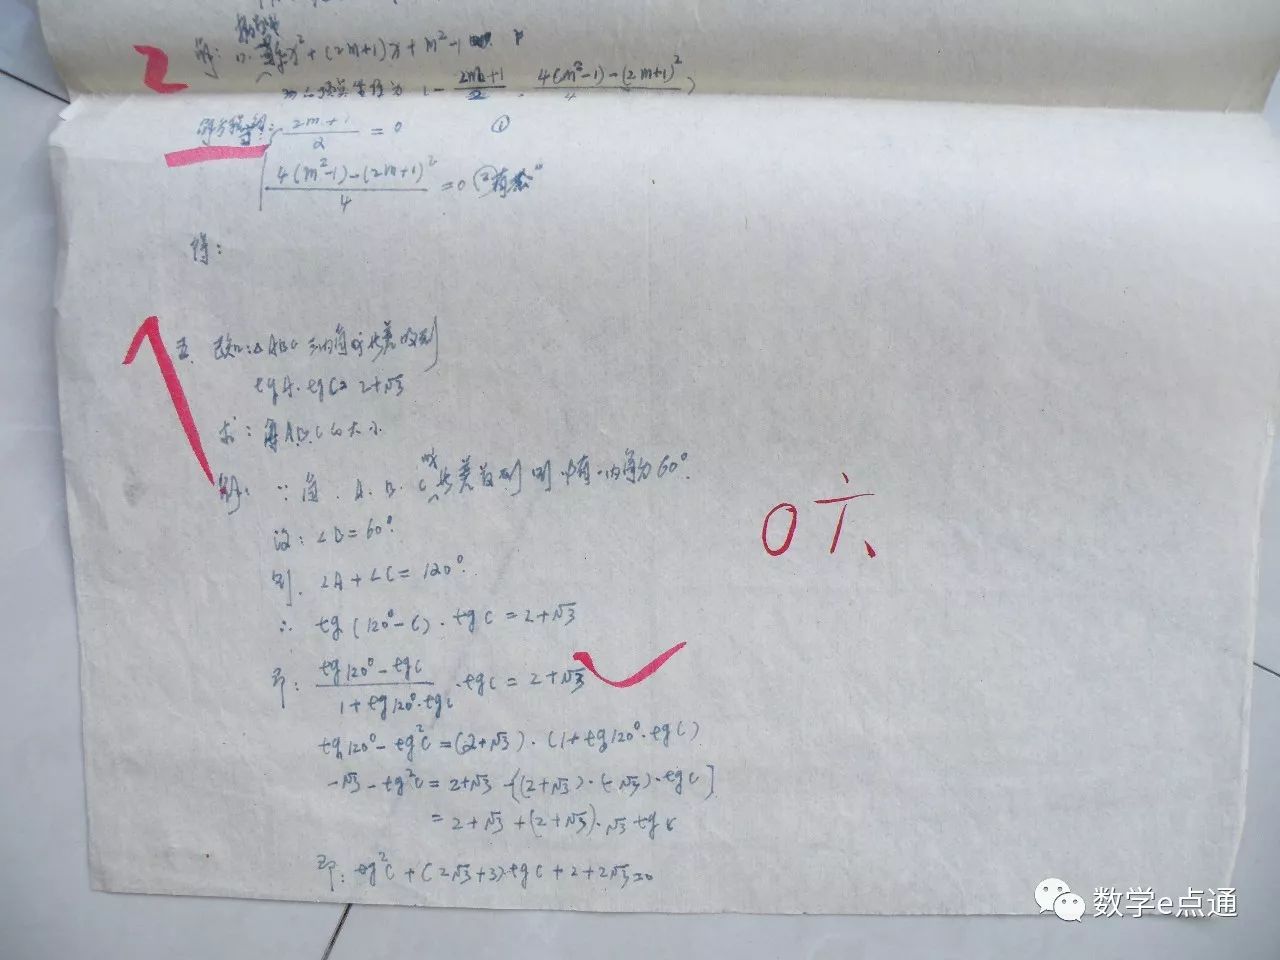 2
解: x² + (2m+1)x + m² - 1
2m+1/2 , 4(m²-1)-(2m+1)²/4
2m+1/2 = 0 ①
4(m²-1)-(2m+1)²/4 = 0 ②
得:
五. 已知: △ABC 三内角成等差数列
tgA·tgC= 2+√3
求: 角A.B.C的大小
解: ∵ 角.A.B.C成等差数列 则 中有一内角为60°.
设: ∠B=60°.
则. ∠A+∠C=120°.
∴ tg(120°-C)·tgC=2+√3
即: tg120°-tgC/1+tg120°·tgC ·tgC=2+√3
0六、
tg120°-tg²C=(2+√3)·(1+tg120°·tgC)
-√3-tg²C=2+√3-[(2+√3)·(-√3)·tgC]
=2+√3+(2+√3)·√3tgC
即: tg²C+(2√3+3)tgC+2+2√3=0
数学e点通